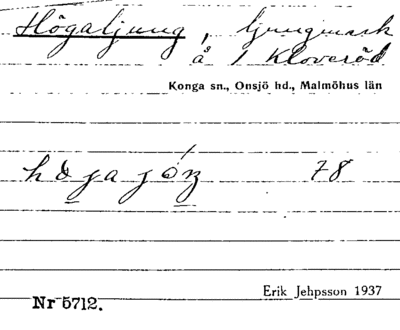 Högaljung, ljungmark
å 1 Kloveröd
Konga sn., Onsjö hd., Malmöhus län
78
Erik Jehpsson 1937
Nr 5712.